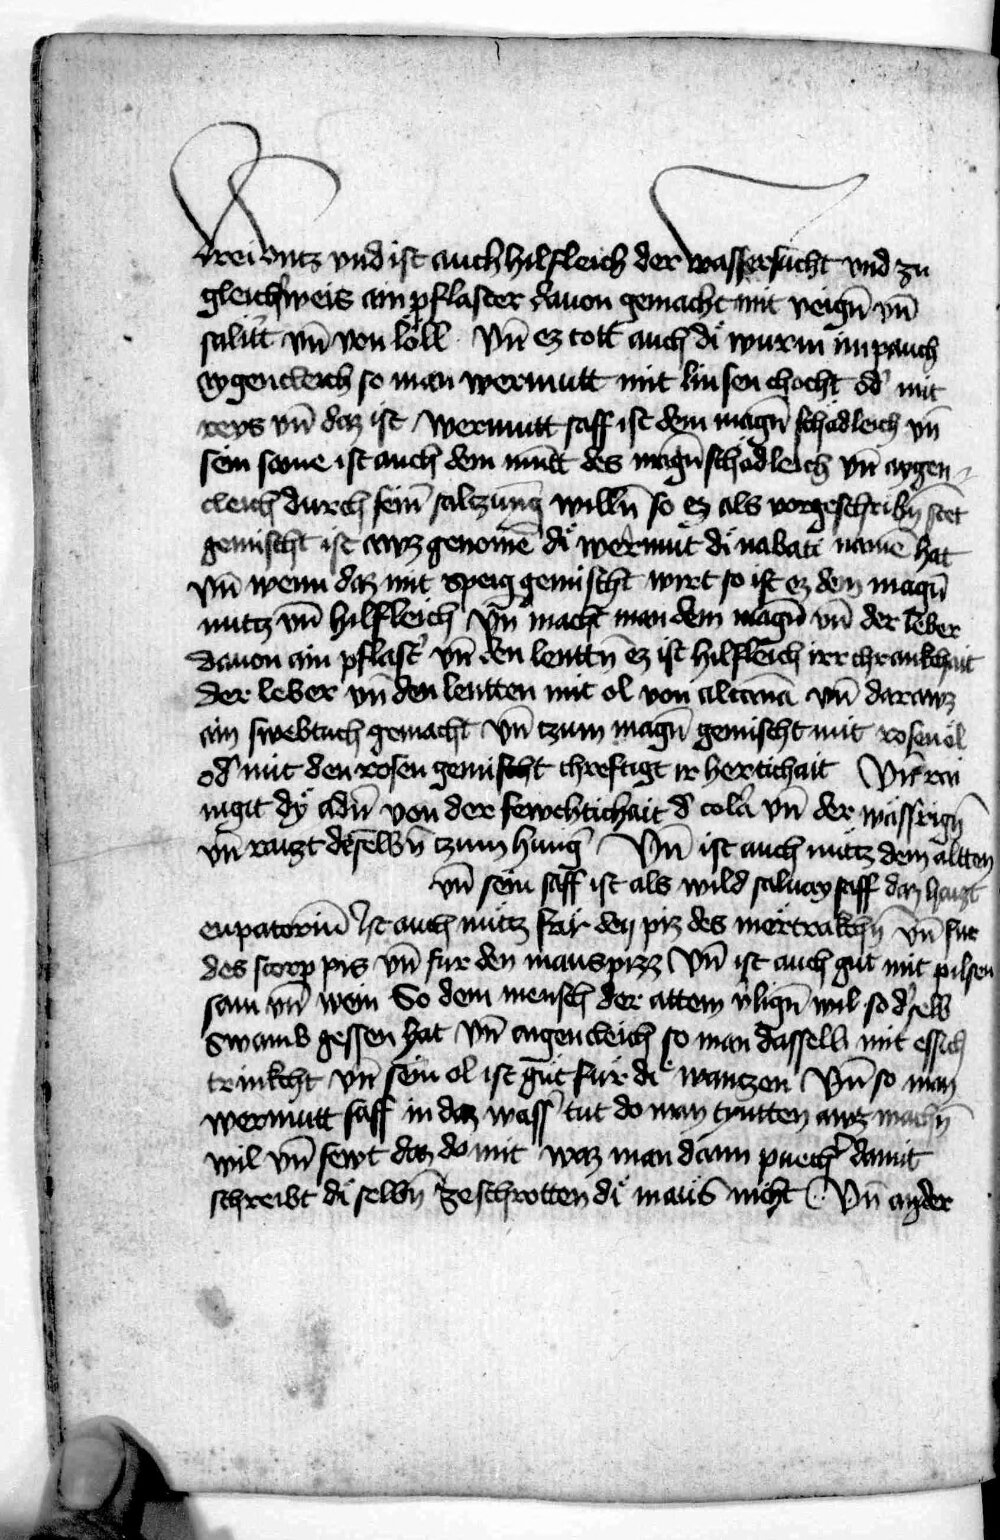 drei vntz vnd ist auch hilfleich der wassersucht vnd zu
gleichˀweis ain pflaster dauon gemacht mit veign̄ vn̄
salitˀr vn̄ von löll Vn̄ ez tött auch di wurm im pauch
aygencleich so man wermutt mit linsen chocht odˀ mit
reys vn̄ daz ist wermutt saff ist dem magn̄ schadleich vn̄
sein same ist auch dem mu᷑tt des magn̄ schadleich vn̄ aygen
cleich durch sein̄ saltzung willn̄ so ez als vorgeschribn̄ stet
gemischt ist awz genome᷑ di wermut di nabati name᷑ hat
vn̄ wenn daz mit speig gemischt wirt so ist ez dem magn̄
nuttz vn̄ hilfleich Vn̄ macht man dem magn̄ vn̄ der leber
dauon ain pflastˀ vn̄ den lenttn̄ ez ist hilfleich irr chrankchait
der leber vn̄ den lentten mit ol von alcana vn̄ darawz
ain swebtuch gemacht vn̄ tzum magn̄ gemischt mit rosenöl
odˀ mit den rosen gemischt chreftigt ir hertichait Vn̄ rai
nigt dy adn̄ von der fewchtichait dˀ colˀa vn̄ der wassrign̄
vn̄ raizt deselbn̄ tzum hungˀ Vn̄ ist auch nuttz dem altten
vn̄ sein saff ist als wild saluay saff daz haizt
eupatoriu᷑ Ist auch nuttz fur den piz des mertrakchn̄ vn̄ fur
des scorp pis vn̄ fur den mauspizz Vn̄ ist auch gut mit pilsen
sam vn̄ wein So dem mensch der attem vˀlign̄ wil so dˀ selb
swamb gessen hat vn̄ aigencleich so man dasselb mit essich
trinkcht vn̄ sein ol ist gut fur di wantzen Vn̄ so man
wermutt saff in daz wassˀ tut do man tyntten awz machn̄
wil vn̄ sewt daz do mit waz man dann puechˀ damit
schreibt di selbn̄ zeschrotten di maus nicht Vn̄ ander